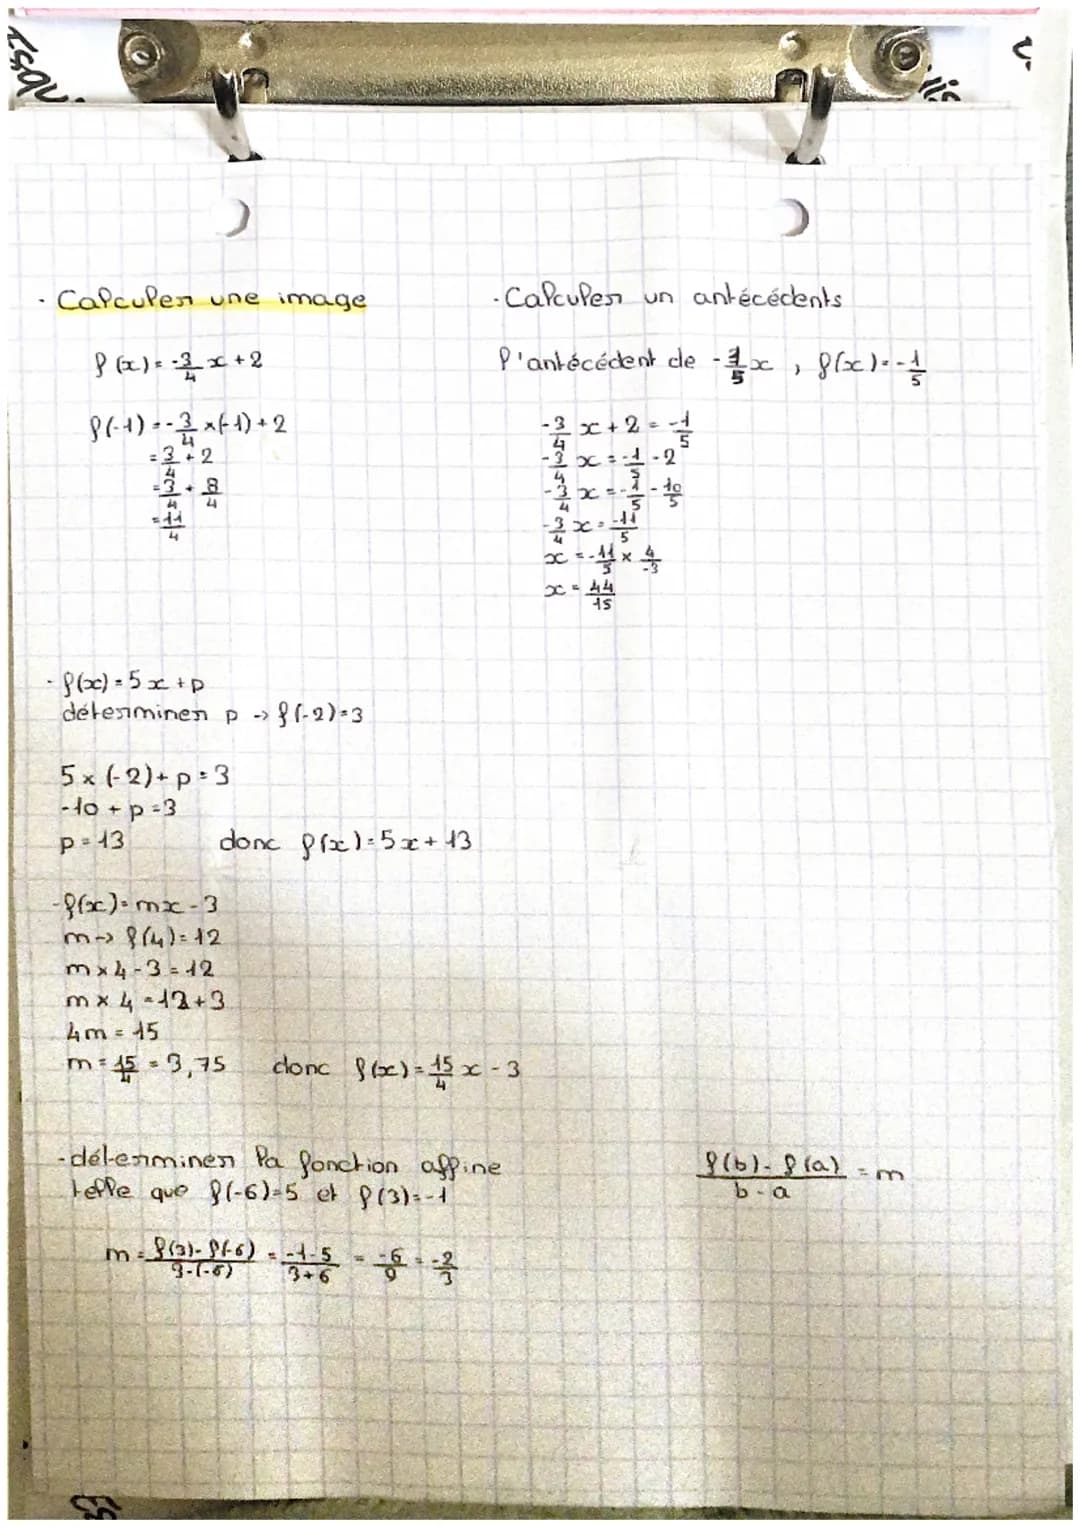 · Calculer une image
f(x) = -3/4 x + 2
f(-1) = -3/4 × (-1) + 2
= 3/4 + 2
= 3/4 + 8/4
= 11/4
· Calculer un antécédents
l'antécédent de -1/5 x , f(x) = -1/5
-3/4 x + 2 = -1/5
-3/4 x = -1/5 - 2
-3/4 x = -1/5 - 10/5
-3/4 x = -11/5
x = -11/5 × 4/-3
x = 44/15
- f(x) = 5x + p
déterminer p -> f(-2) = 3
5 × (-2) + p = 3
-10 + p = 3
p = 13 donc f(x) = 5x + 13
- f(x) = mx - 3
m -> f(4) = 12
m × 4 - 3 = 12
m × 4 = 12 + 3
4m = 15
m = 15/4 = 3,75 donc f(x) = 15/4 x - 3
- déterminer la fonction affine
telle que f(-6) = 5 et f(3) = -1
f(b) - f(a) / b - a = m
m = f(3) - f(-6) / 3 - (-6) = -1 - 5 / 3 + 6 = -6/9 = -2/3